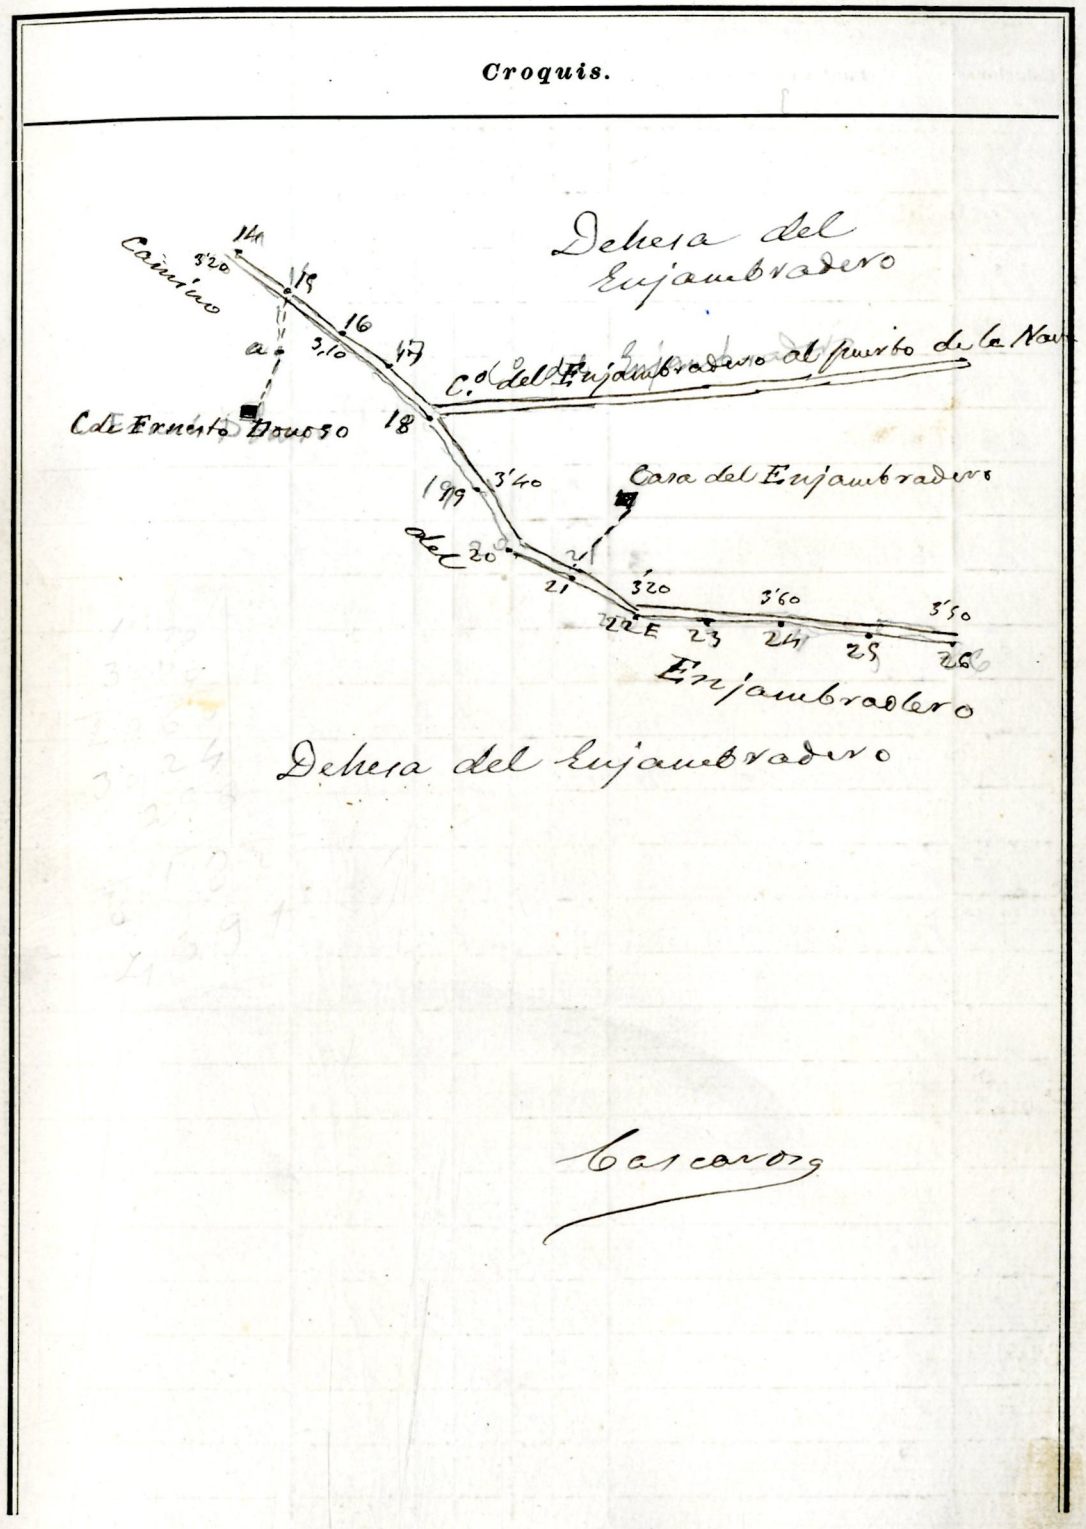 Croquis.
Dehesa del
Enjambradero
Camino
14
3'20
15
16
3,10
17
a
C. de Ernesto Donoso
18
C.º del Enjambradero al puerto de la Nava
19
3'40
Casa del Enjambradero
del
20
21
21
3'20
3'60
3'50
22 E
23
24
25
26
Enjambradero
Dehesa del Enjambradero